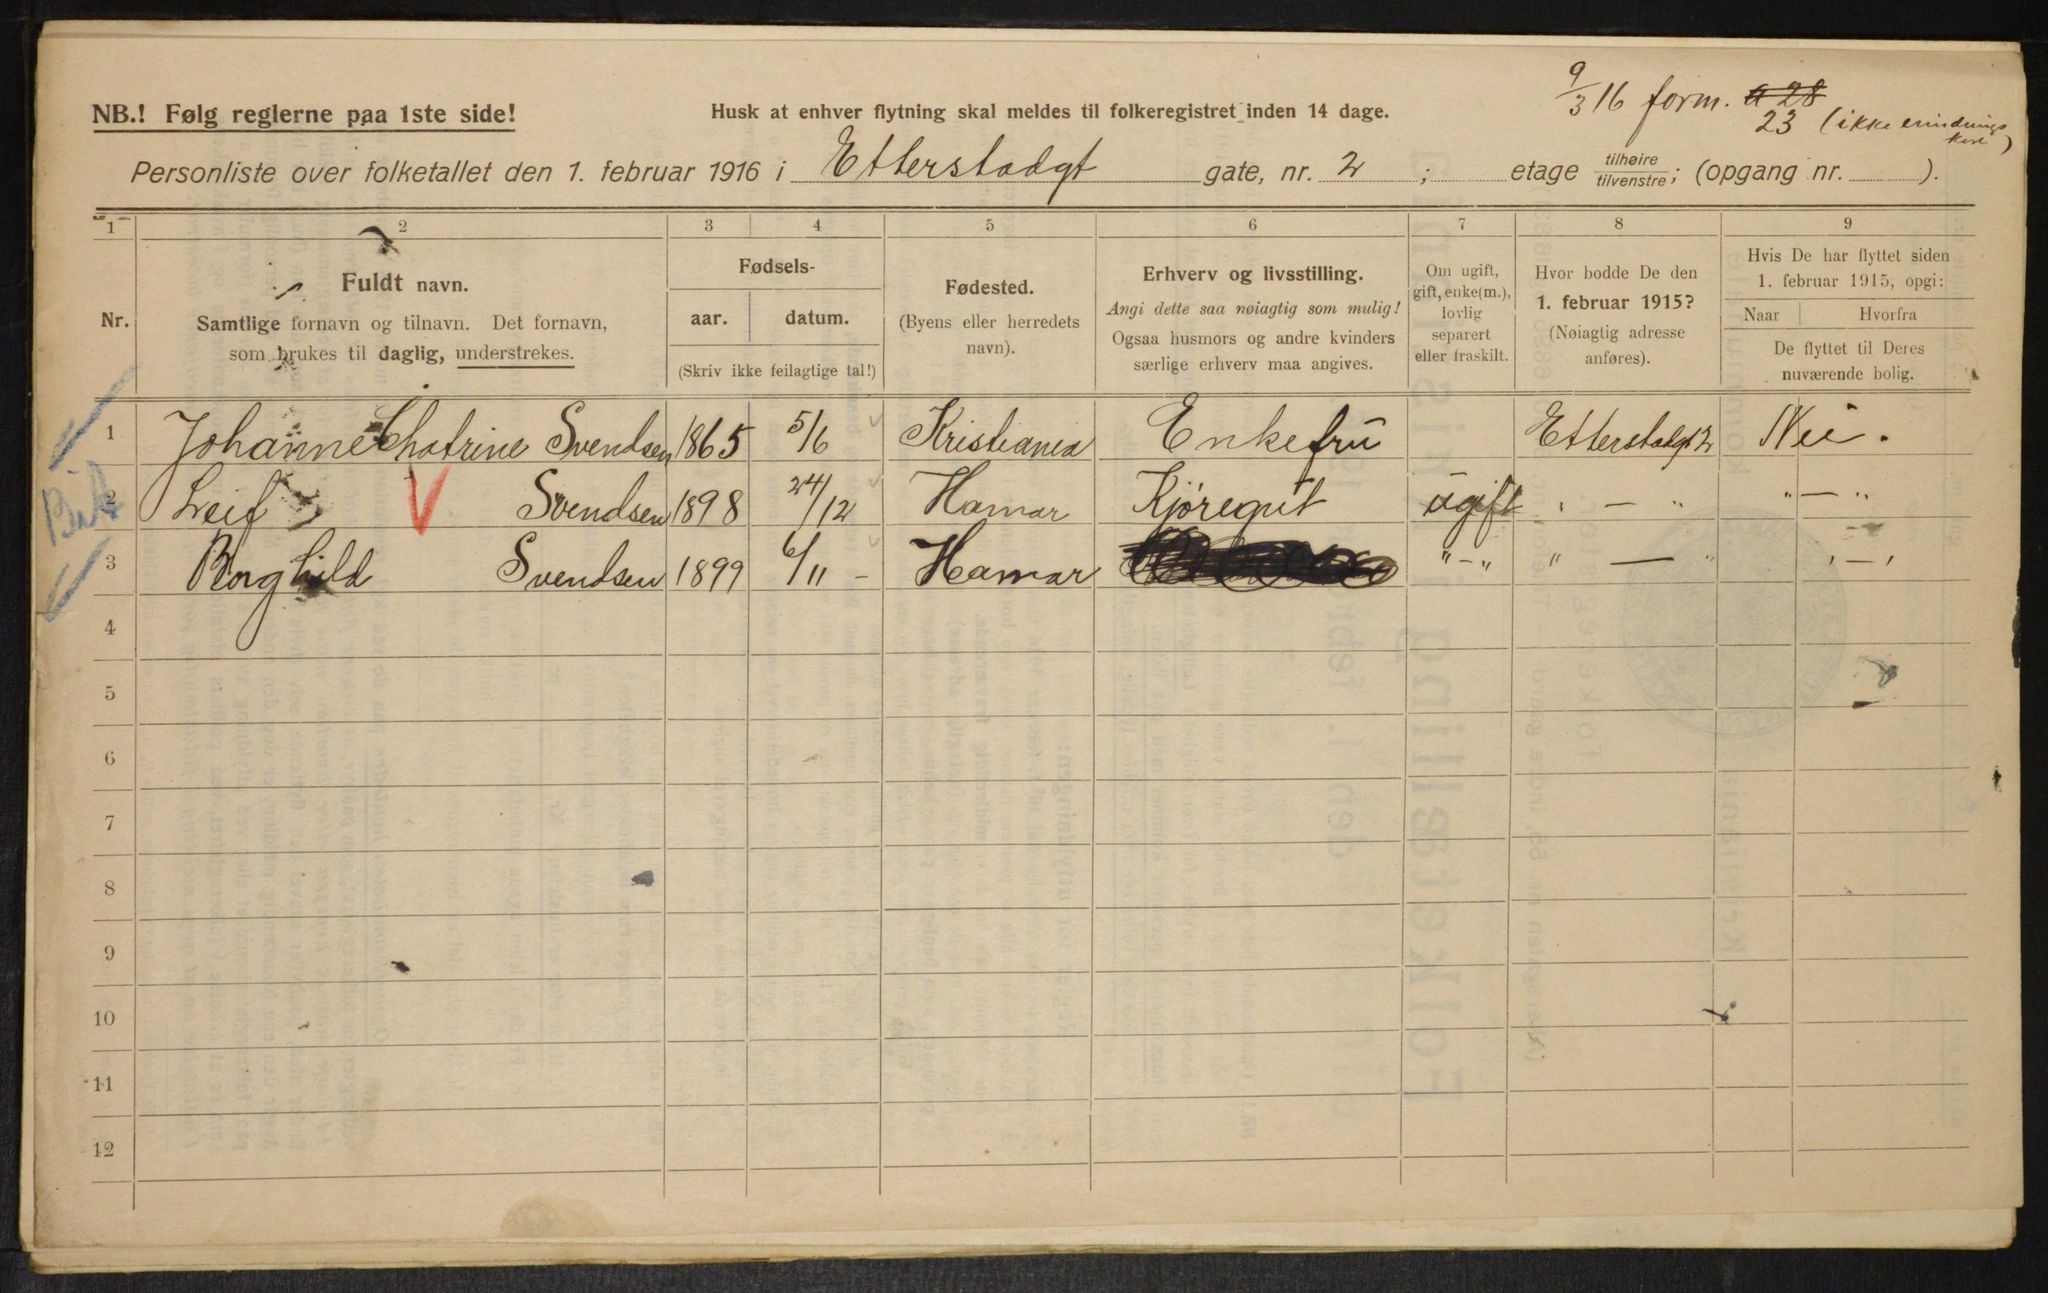 9/3 16 form. a 28
23 (ikke erindringskort)
NB.! Følg reglerne paa 1ste side!
Husk at enhver flytning skal meldes til folkeregistret inden 14 dage.
Personliste over folketallet den 1. februar 1916 i Etterstadgt gate, nr. 2 ; etage tilhøire tilvenstre; (opgang nr. ).
1 2 3 4 5 6 7 8 9
Nr.
Fuldt navn.
Samtlige fornavn og tilnavn. Det fornavn,
som brukes til daglig, understrekes.
Fødsels-
aar. datum.
(Skriv ikke feilagtige tal!)
Fødested.
(Byens eller herredets
navn).
Erhverv og livsstilling.
Angi dette saa nøiagtig som mulig!
Ogsaa husmors og andre kvinders
særlige erhverv maa angives.
Om ugift,
gift, enke(m.),
lovlig
separert
eller fraskilt.
Hvor bodde De den
1. februar 1915?
(Nøiagtig adresse
anføres).
Hvis De har flyttet siden
1. februar 1915, opgi:
Naar Hvorfra
De flyttet til Deres
nuværende bolig.
1 Johanne Chatrine Svendsen 1865 5/6 Kristiania Enkefru Etterstadgt 2 Nei.
2 Leif Svendsen 1898 24/12 Hamar Kjøregut ugift " — " " — "
3 Borghild Svendsen 1899 6/11 - Hamar " - " " — " " — "
4
5
6
7
8
9
10
11
12